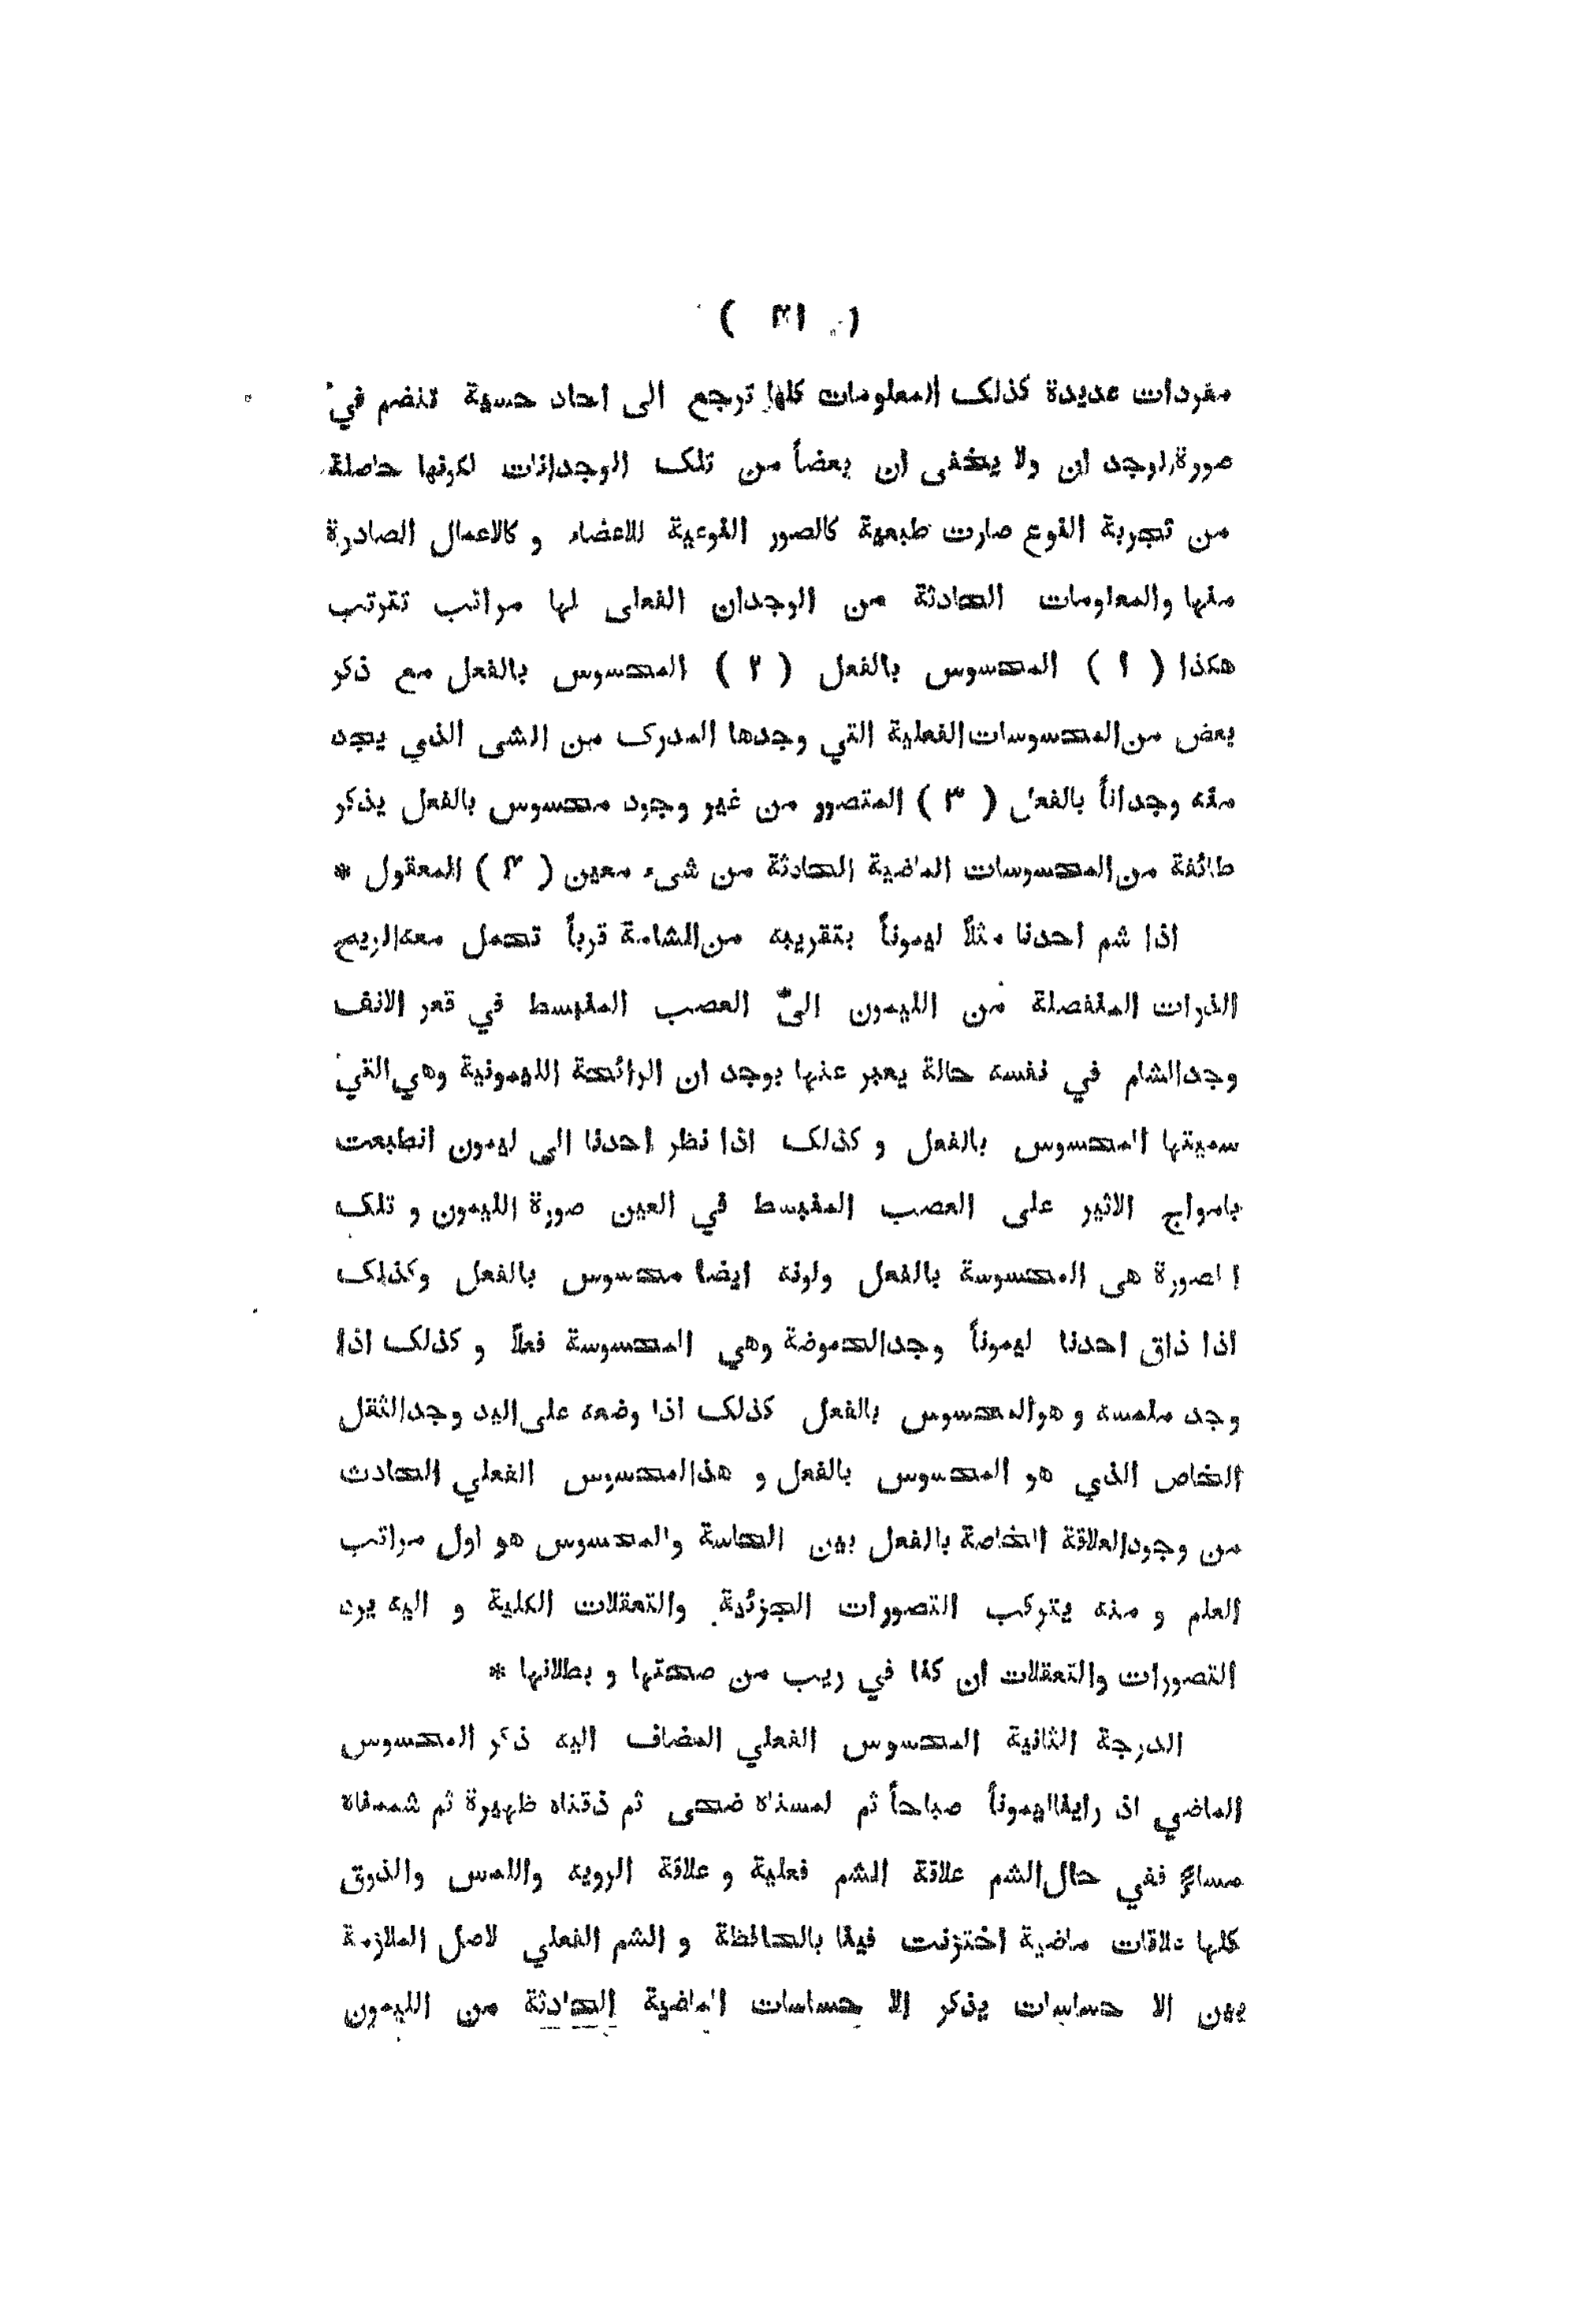 ( ١٤ )
مفردات عديدة كذلك المعلومات كلها ترجع الى احاد حسية تنضم في
صورة الوجد ان ولا يخفى ان بعضاً من تلك الوجدانات لكونها حاصلة
من تجربة النوع صارت طبعية كالصور النوعية للاعضاء و كالاعمال الصادرة
منها والمعلومات الحادثة من الوجدان الفعلى لها مراتب تترتب
هكذا ( ١ ) المحسوس بالفعل ( ٢ ) المحسوس بالفعل مع ذكر
بعض من المحسوسات الفعلية التي وجدها المدرك من الشى الذي يجد
منه وجداناً بالفعل ( ٣ ) المتصور من غير وجود محسوس بالفعل يذكر
طائفة من المحسوسات الماضية الحادثة من شىء معين ( ٤ ) المعقول *
اذا شم احدنا مثلاً ليموناً بتقريبه من الشامة قرباً تحمل معه الريح
الذرات المنفصلة من الليمون الى العصب المنبسط في قعر الانف
وجد الشام في نفسه حالة يعبر عنها بوجد ان الرائحة الليمونية وهي التي
سميتها المحسوس بالفعل و كذلك اذا نظر احدنا الى ليمون انطبعت
بامواج الاثير على العصب المنبسط في العين صورة الليمون و تلك
الصورة هى المحسوسة بالفعل ولونه ايضا محسوس بالفعل وكذلك
اذا ذاق احدنا ليموناً وجد الحموضة وهي المحسوسة فعلاً و كذلك اذا
وجد ملمسه و هو المحسوس بالفعل كذلك اذا وضعه على اليد وجد الثقل
الخاص الذي هو المحسوس بالفعل و هذا المحسوس الفعلي الحادث
من وجود العلاقة الخاصة بالفعل بين الحاسة والمحسوس هو اول مراتب
العلم و منه يتركب التصورات الجزئية والتعقلات الكلية و اليه يرد
التصورات والتعقلات ان كنا في ريب من صحتها و بطلانها *
الدرجة الثانية المحسوس الفعلي المضاف اليه ذكر المحسوس
الماضي اذ راينا ليموناً صباحاً ثم لمسناه ضحى ثم ذقناه ظهيرة ثم شممناه
مساءً ففي حال الشم علاقة الشم فعلية و علاقة الرويه واللمس والذوق
كلها علاقات ماضية اختزنت فينا بالحافظة و الشم الفعلي لاصل الملازمة
بين الا حساسات يذكر الا حساسات الماضية الحادثة من الليمون